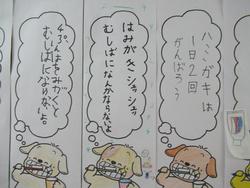 ハミガキは
1日2回
がんばろう
はみがきシュッシュッ
むしばになんかならないよ
4ぷんはをみがくと
むしばにならないよ。